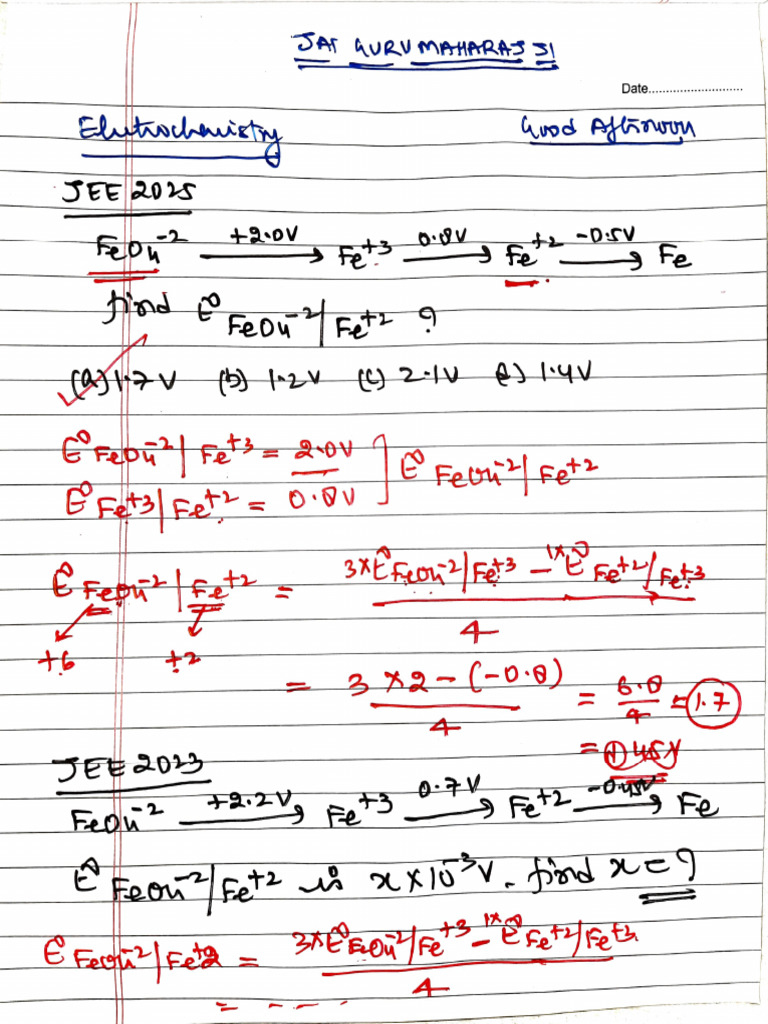 JAI GURU MAHARAJ JI
Date............................
Electrochemistry Good Afternoon
JEE 2025
FeO₄⁻² —+2.0V→ Fe⁺³ —0.8V→ Fe⁺² —-0.5V→ Fe
find E⁰ FeO₄⁻²|Fe⁺² ?
(a) 1.7V (b) 1.2V (c) 2.1V (d) 1.4V
E⁰ FeO₄⁻²|Fe⁺³ = 2.0V ] E⁰ FeO₄⁻²|Fe⁺²
E⁰ Fe⁺³|Fe⁺² = 0.8V
E⁰ FeO₄⁻²|Fe⁺² = 3×E⁰FeO₄⁻²|Fe⁺³ - 1×E⁰Fe⁺²/Fe⁺³
4
+6 +2
= 3×2-(-0.8) = 6.8 = 1.7
4 4
JEE 2023
FeO₄⁻² —+2.2V→ Fe⁺³ —0.7V→ Fe⁺² —-0.45V→ Fe
E⁰ FeO₄⁻²/Fe⁺² is x×10⁻³V. find x = ?
E⁰ FeO₄⁻²|Fe⁺² = 3×E⁰FeO₄⁻²/Fe⁺³ - 1×E⁰Fe⁺²/Fe⁺³
4
= - - - -